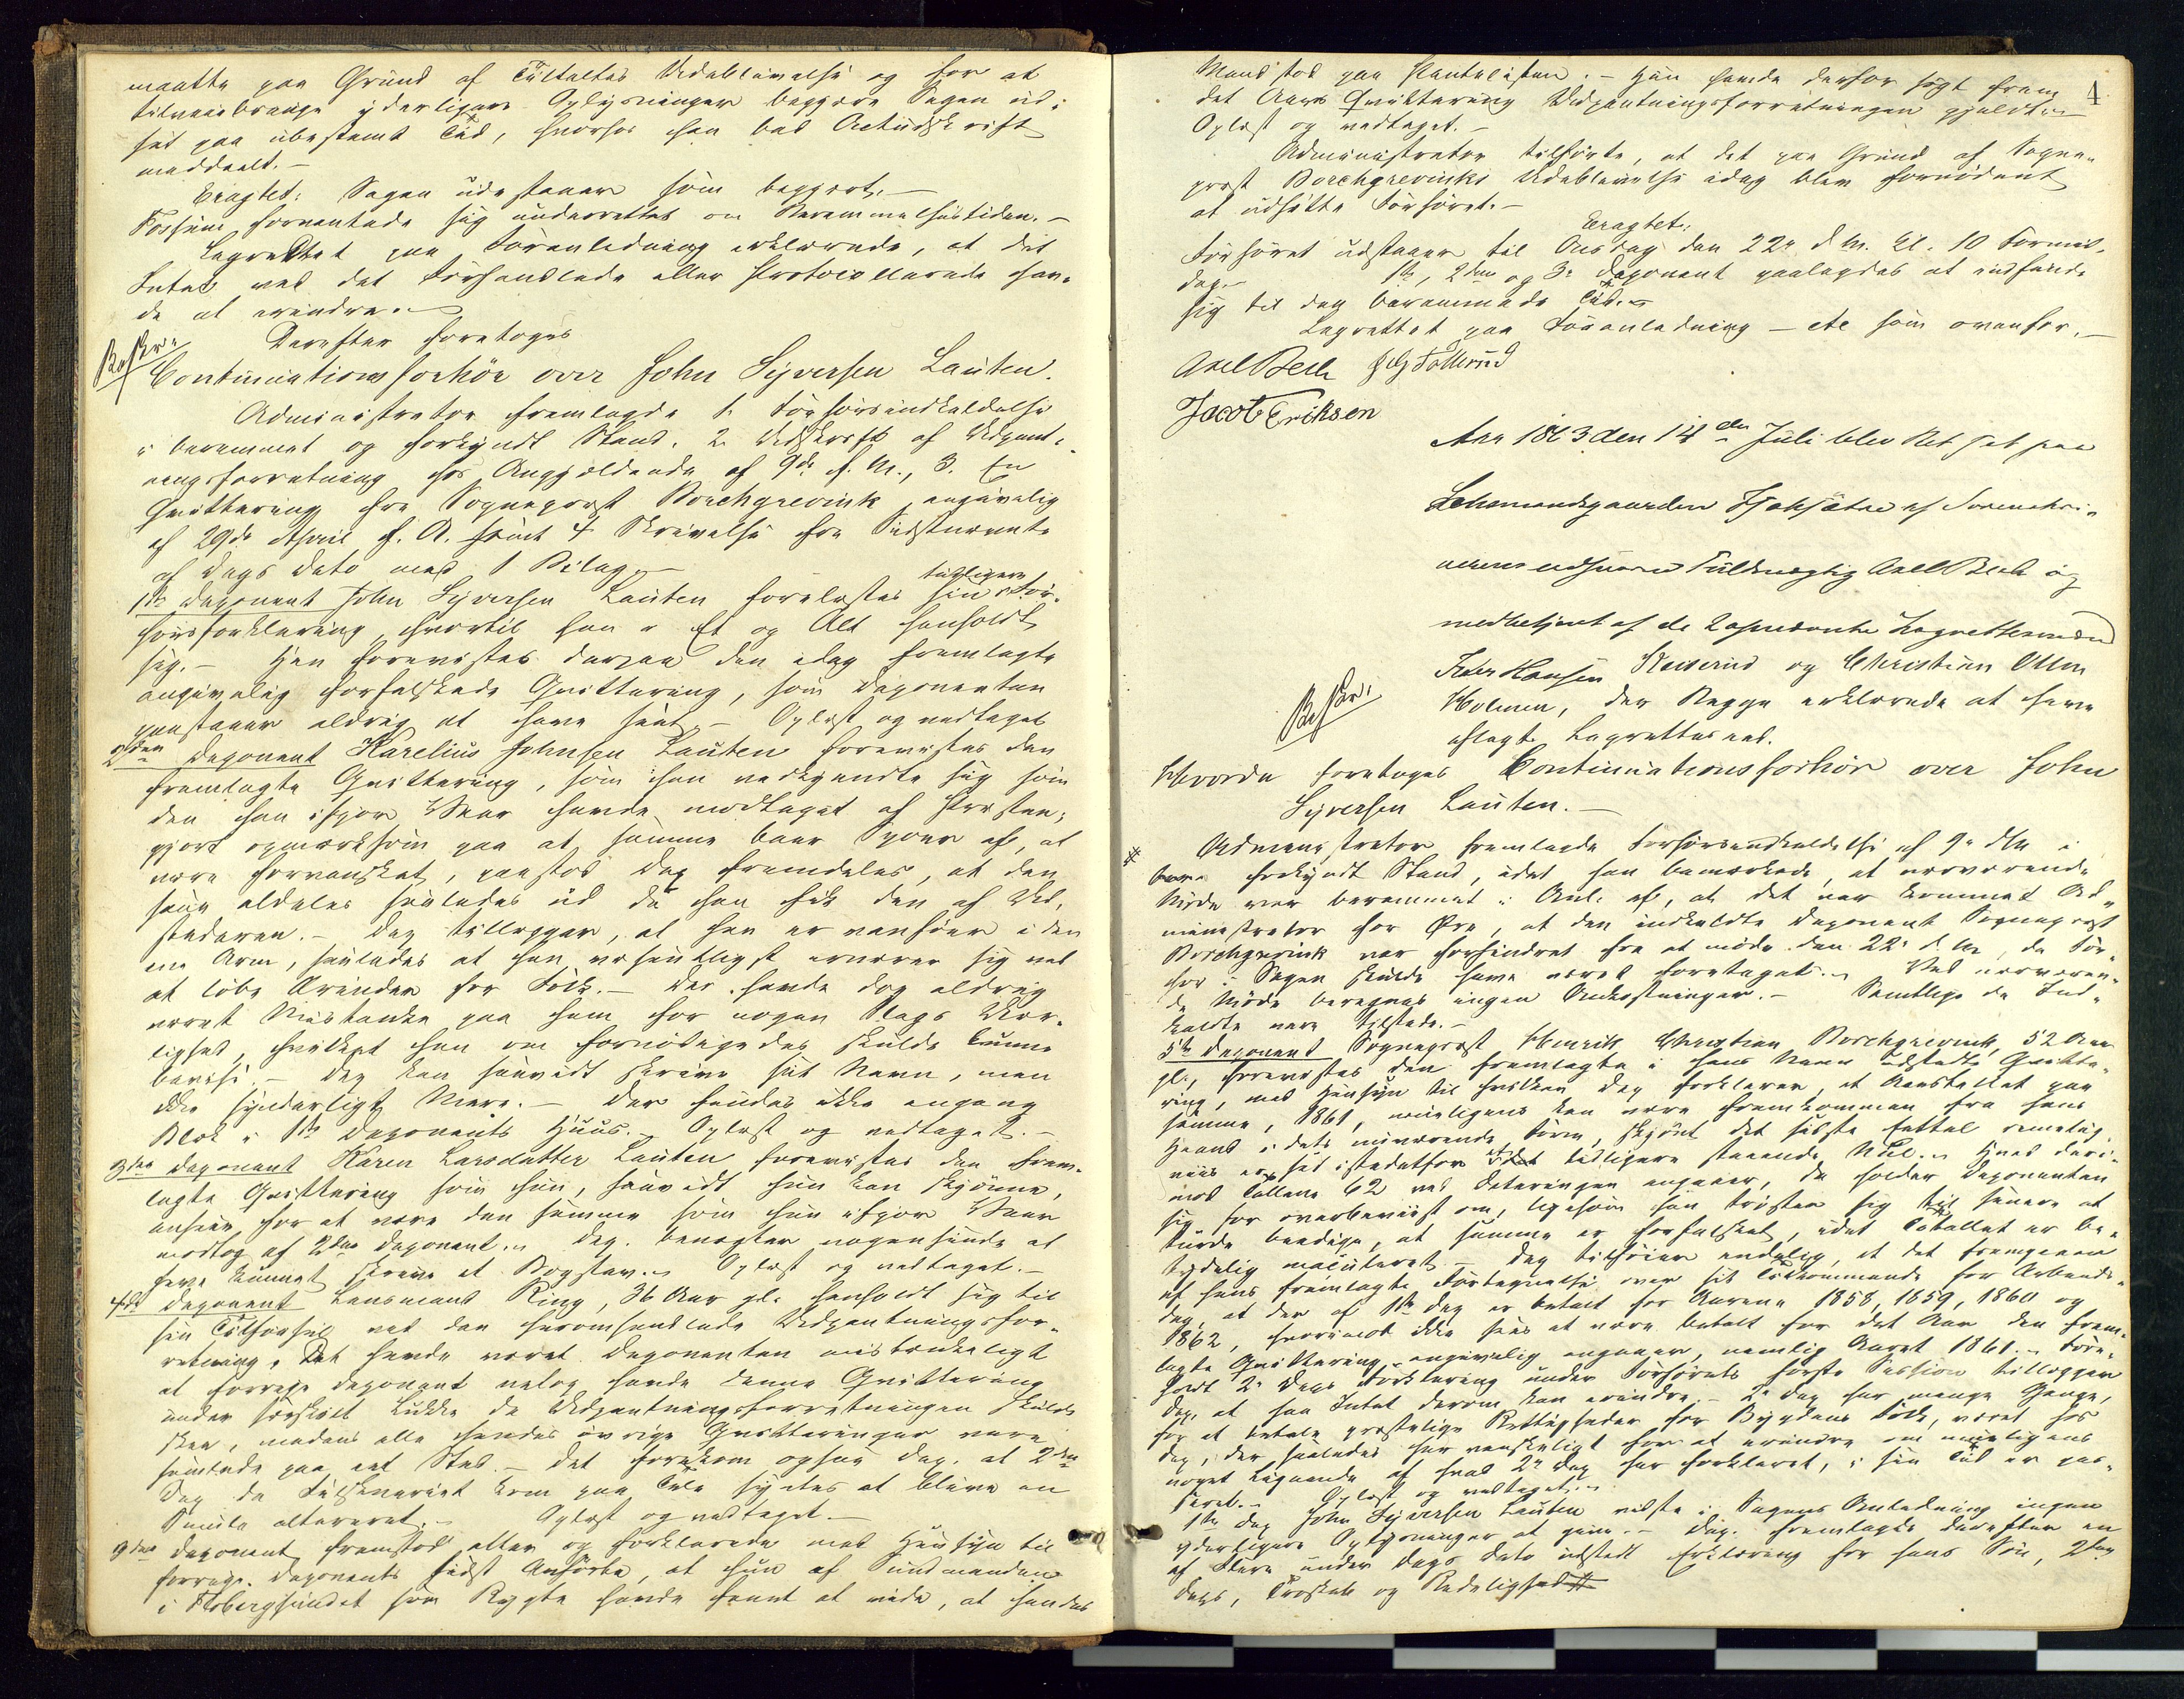 maatte paa Grund af Tiltaltes Udeblivelse og for at
tilveiebringe yderligere Oplysninger begjære Sagen ud-
sat paa ubestemt Tid, hvorfor han bad Actudskrift
meddeelt.-
Eragtet: Sagen udestaaer som begjært.-
Fossum forventede sig underrettet om Berammelsestiden.-
Lagrettet paa Foranledning erklærede, at det
Intet ved det Forhandlede eller Protocollerede hav-
de at erindre.
Derefter foretoges
Beskr.
Continuationsforhör over John Syversen Lauten.
Administrator fremlagde 1. Forhörsindkaldelse
i berammet og forkyndt Stand, 2 Udskrift af Udpant-
ningsforretning hos Angjældende af 9de f. M., 3. En
Qvittering fra Sogneprest Borchgrevink, angivelig
af 29de April f. A. samt 4 Skrivelse fra Sidstnævnte
af Dags Dato med 1 Bilag.-
1ste Deponent John Syversen Lauten forelæstes sin tidligere For-
hörsforklaring, hvortil han i Et og Alt henholdt
sig.- Han forevistes derpaa den idag fremlagte
angivelig forfalskede Qvittering, som Deponenten
paastaaer aldrig at have seet.- Oplæst og vedtaget
2den Deponent Karelius Johnsen Lauten forevistes den
fremlagte Qvittering, som han vedkjendte sig som
den han ifjor Vaar havde modtaget af Presten;
gjort opmærksom paa at samme bær Spor af, at
være forvansket, paastod Dep. fremdeles, at den
saae aldeles saaledes ud da han fik den af Ud-
stederen.- Dep. tillægger, at han er vanfør i den
ene Arm, saaledes at han væsentligst ernærer sig ved
at löbe Ærinder for Folk.- Der havde dog aldrig
været Mistanke paa ham for nogen Slags Uær-
lighed, hvilket han om fornödiges skulde kunne
bevise.- Dep. kan saavidt skrive sit Navn, men
ikke synderligt Mere.- Der fandtes ikke engang
Blæk i 1ste Deponents Huus.- Oplæst og vedtaget.-
3die Deponent Karen Larsdatter Lauten forevistes den frem-
lagte Qvittering som hun, saavidt hun kan skjönne,
anseer for at være den samme som hun ifjor Vaar
modtog af 2den Deponent.- Dep. benegter nogensinde at
have kunnet skrive et Bogstav.- Oplæst og vedtaget.-
4de Deponent Lensmand Ring, 36 Aar gl. henholdt sig til
sin Tilförsel ved den heromhandlede Udpantningsfor-
retning. Det havde været Deponenten mistænkeligt
at forrige Deponent netop havde denne Qvittering
under særskilt Lukke da Udpantningsforretningen skulde
skee, medens alle hendes övrige Qvitteringer vare
samlede paa eet Sted.- Det forekom ogsaa Dep. at 2den
Dep. da Falskneriet kom paa Tale syntes at blive en
Smule altereret.- Oplæst og vedtaget.-
3die Deponent fremstod atter og forklarede med Hensyn til
forrige Deponents sidst Anförte, at hun af Sundmanden
i Flobergsundet som Rygte havde faaet at vide, at hendes
4
Mand stod paa Pantelisten.- Hun havde derfor sögt frem
det Aars Qvittering Udpantningsforretningen gjældte.-
Oplæst og vedtaget.-
Administrator tilförte, at det paa Grund af Sogne-
prest Borchgrevinks Udeblivelse idag blev fornödent
at udsætte Forhöret.-
Eragtet:
Forhöret udstaaer til Onsdag den 22de d. M. Kl. 10 Formid-
dag.- 1ste, 2den og 3die Deponent paalagdes at indfinde
sig til den berammede Tid.-
Lagrettet paa Foranledning - etc som ovenfor.-
Axel Bech
Jacob Eriksen
Aar 1863 den 14den Juli blev Ret sat paa
Lehnsmandsgaarden af Sorenskri-
verens edsvorne Fuldmægtig Axel Bech og
medbetjent af de 2 opnævnte Lagrettesmænd
Hansen og Christian Olsen
Holmen, der Begge erklærede at have
aflagt Lagrettesed.
Beskr.
Hvorda foretoges Continuationsforhör over John
Syversen Lauten.-
Administrator fremlagde Forhörsindkaldelse af 9de d. M. i
forkyndt Stand, idet han bemærkede, at nærværende
Möde var berammet i Anl. af, at det var kommet Ad-
ministrator for Öre, at den indkaldte Deponent Sogneprest
Borchgrevink var forhindret fra at møde den 22de d. M., da For-
hör i Sagen skulde have været foretaget.- Ved nærværen-
de Möde beregnes ingen Omkostninger.- Samtlige de Ind-
kaldte vare tilstede.-
5te Deponent Sogneprest Henrik Christian Borchgrevink, 52 Aar
gl., forevistes den fremlagte i hans Navn udstedte Qvitte-
ring, med Hensyn til hvilken Dep. forklarer, at Aarstallet paa
samme, 1861, muligens kan være fremkommen fra hans
Haand i dets nuværende Form, skjönt det sidste Ettal rimelig-
viis er sat istedetfor et tidligere staaende Nul.- Hvad der-
imod Tallene 62 ved Dateringen angaaer, da holder Deponenten
sig for overbeviist om, ligesom han tröster sig til senere at
turde beedige, at samme er forfalsket, idet Totallet er be-
tydelig maculeret.- Dep. tilföier endelig, at det fremgaaer
af hans fremlagte Fortegnelse over sit Tilkommende for Arbeids-
dag, at der af 1ste Dep. er betalt for Aarene 1858, 1859, 1860 og
1862, hvorimod ikke sees at være betalt for det Aar den frem-
lagte Qvittering angivelig angaaer, nemlig Aaret 1861.- Fore-
holdt 2den Deps Forklaring under Forhörets förste Session tillægger
Dep. at han Intet derom kan erindre.- 2den Dep. har mange Gange,
for at betale prestelige Rettigheder for Bygdens Folk, været hos
Dep., der saaledes har vanskeligt for at erindre om muligens
noget Lignende af hvad 2den Dep. har forklaret, i sin Tid er pas-
seret.- Oplæst og vedtaget.-
1ste Dep. John Syversen Lauten vidste i Sagens Anledning ingen
yderligere Oplysninger at give.- Dep. fremlagde derefter en
af Flere under Dags Dato udstedt Erklæring for hans Sön, 2den
Deps, Troskab og Redelighed